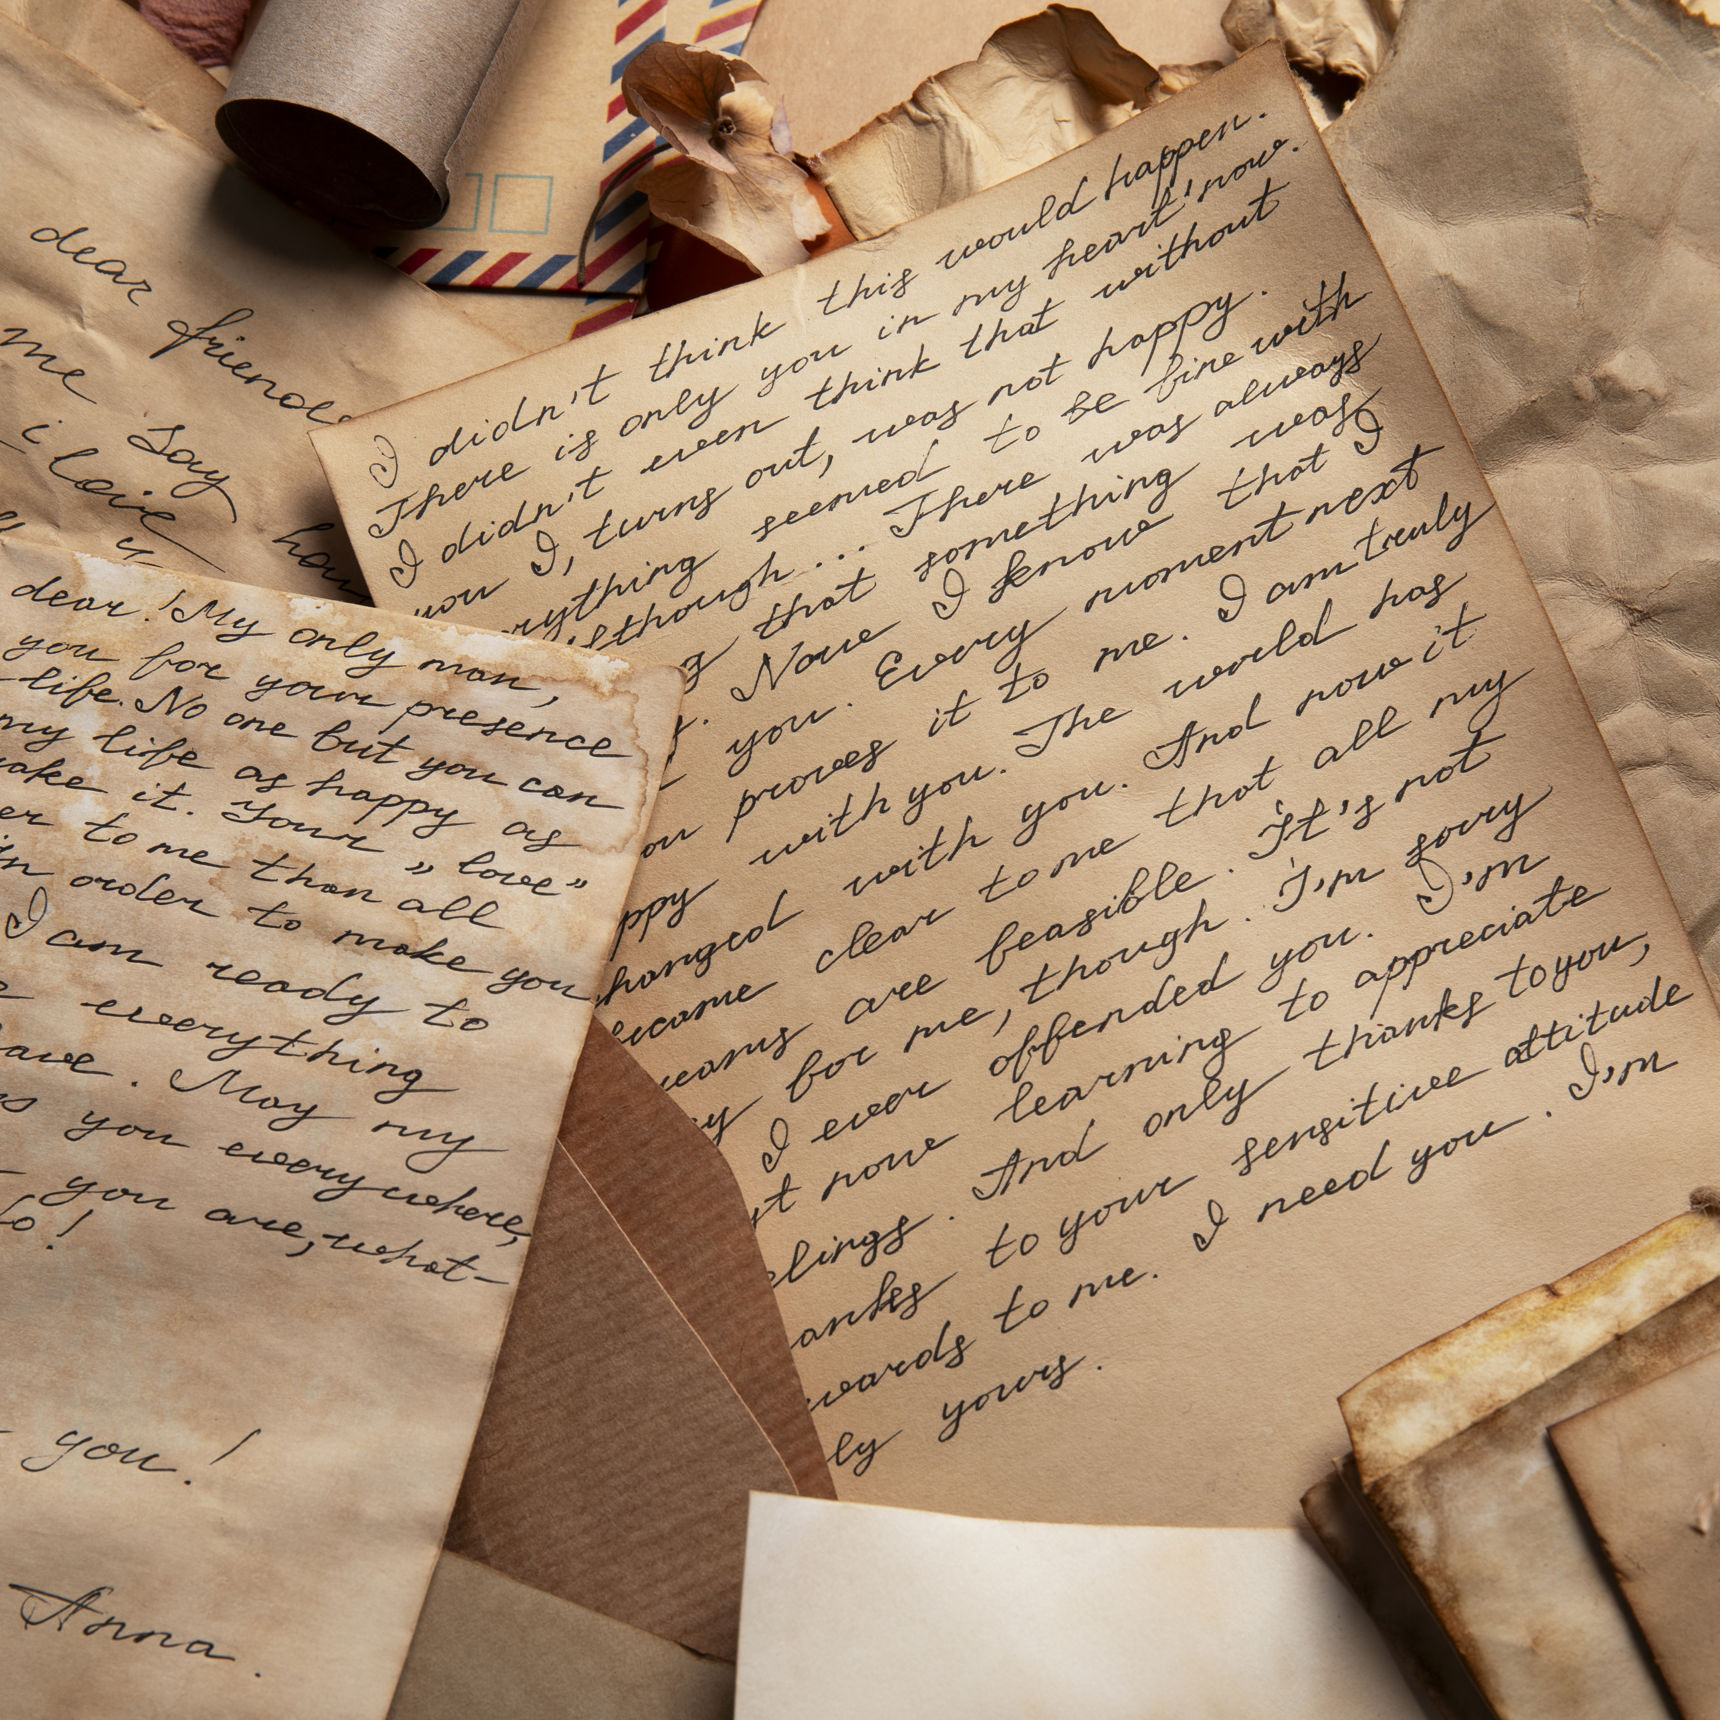 dear friends
me Say
i love
you
hou
dear! My only man,
you for your presence
life. No one but you can
my life as happy as
ake it. Your „love”
er to me than all
in order to make you
I am ready to
everything
ave. May my
s you everywhere,
you are, what-
so!
you!
Anna.
I didn't think this would happen.
There is only you in my heart now.
I didn't even think that without
you I, turns out, was not happy.
rything seemed to be fine with
lthough... There was always
g that something was
Now I know that I
you. Every moment next
ou proves it to me. I am truly
ppy with you. The world has
hanged with you. And now it
ecame clear to me that all my
reams are feasible. It's not
y for me, though. I'm sorry
I ever offended you. I'm
st now learning to appreciate
elings. And only thanks to you,
anks to your sensitive attitude
wards to me. I need you. I'm
ly yours.